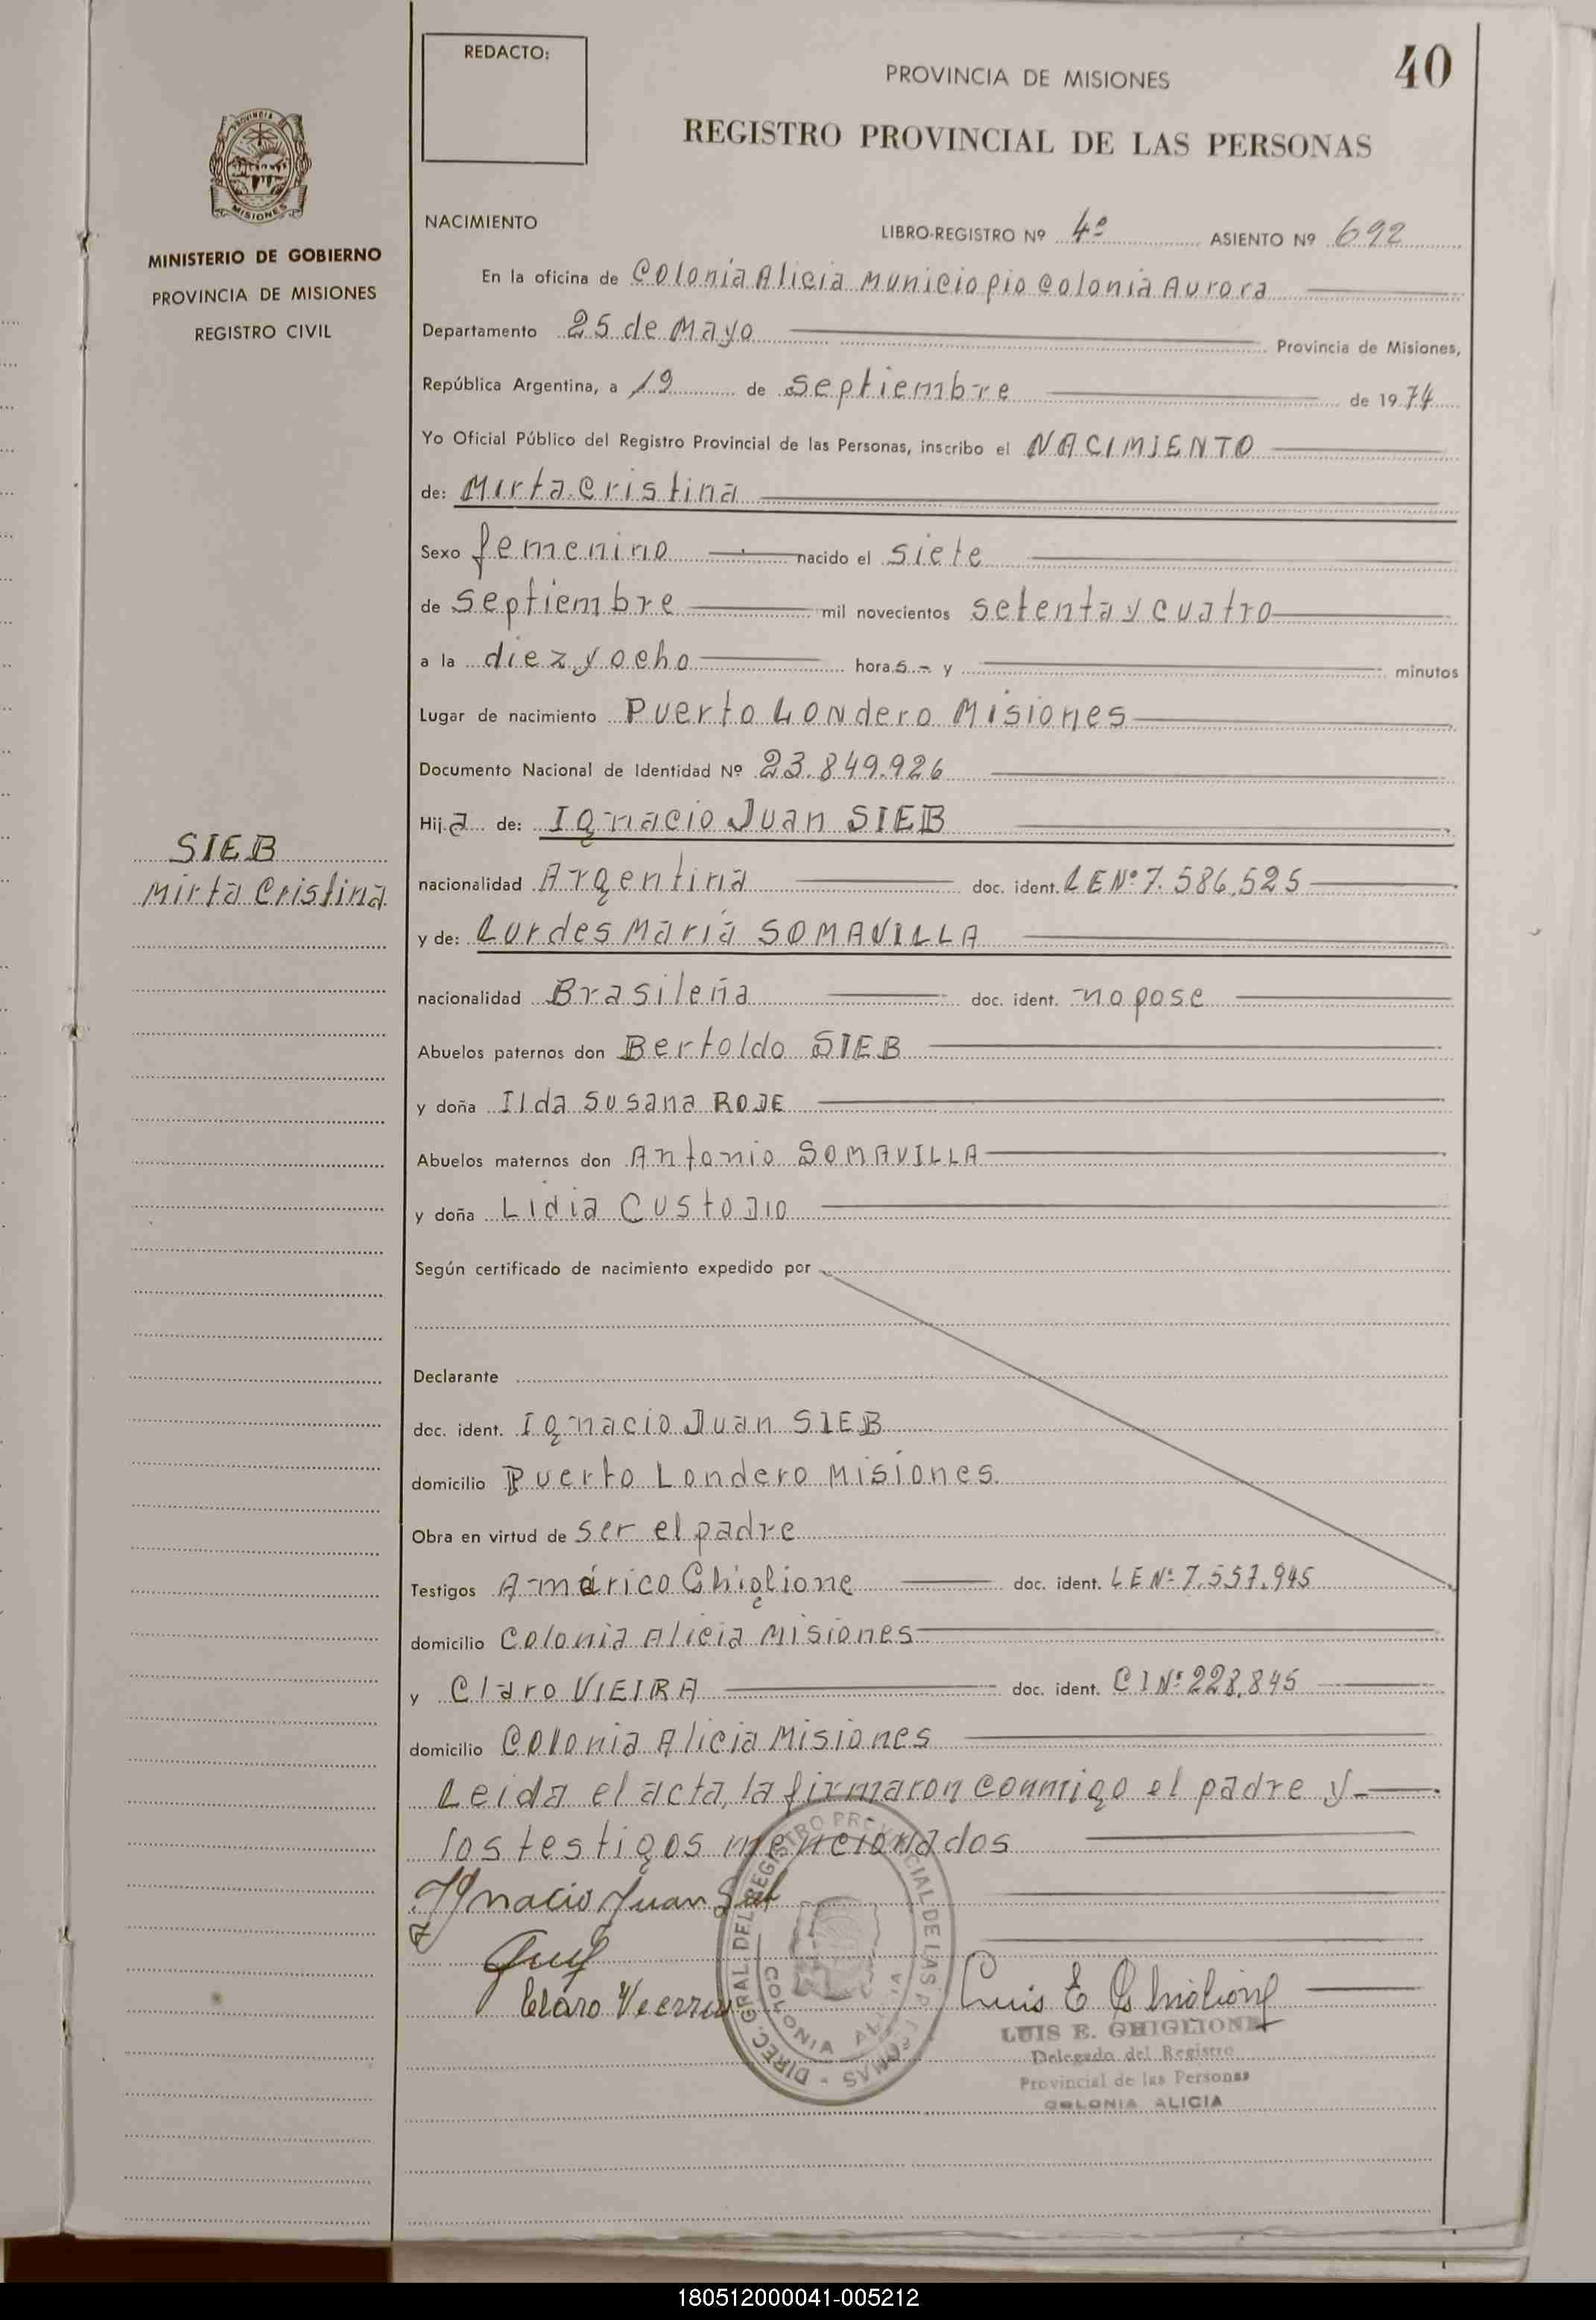 REDACTO:
PROVINCIA DE MISIONES
40
REGISTRO PROVINCIAL DE LAS PERSONAS
PROVINCIA DE
MISIONES
MINISTERIO DE GOBIERNO
PROVINCIA DE MISIONES
REGISTRO CIVIL
SIEB
Mirta Cristina
NACIMIENTO
LIBRO-REGISTRO Nº 4º ASIENTO Nº 692
En la oficina de Colonia Alicia Municiopio Colonia Aurora
Departamento 25 de Mayo Provincia de Misiones,
República Argentina, a 19 de septiembre de 1974
Yo Oficial Público del Registro Provincial de las Personas, inscribo el NACIMIENTO
de: Mirta Cristina
Sexo femenino nacido el siete
de septiembre mil novecientos setenta y cuatro
a la diez y ocho hora s - y minutos
Lugar de nacimiento Puerto Londero Misiones
Documento Nacional de Identidad Nº 23.849.926
Hij a de: Ignacio Juan SIEB
nacionalidad Argentina doc. ident. LE Nº 7.586.525
y de: Lurdes María SOMAVILLA
nacionalidad Brasileña doc. ident. no pose
Abuelos paternos don Bertoldo SIEB
y doña Ilda Susana ROJE
Abuelos maternos don Antonio SOMAVILLA
y doña Lidia CUSTODIO
Según certificado de nacimiento expedido por
Declarante
doc. ident. Ignacio Juan SIEB
domicilio Puerto Londero Misiones.
Obra en virtud de ser el padre
Testigos Américo Ghiglione doc. ident. LE Nº 7.557.945
domicilio Colonia Alicia Misiones
y Claro VIEIRA doc. ident. CI Nº 228.845
domicilio Colonia Alicia Misiones
Leida el acta, la firmaron conmigo el padre y
los testigos mencionados
Ignacio Juan Sieb
Claro Vieira
Luis E Ghiglione
DIREC. GRAL. DEL REGISTRO PROVINCIAL DE LAS PERSONAS
COLONIA ALICIA
LUIS E. GHIGLIONE
Delegado del Registro
Provincial de las Personas
COLONIA ALICIA
180512000041-005212